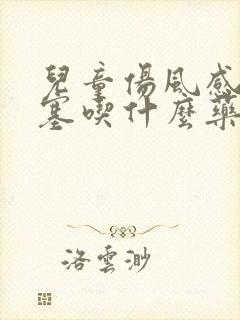 兒童傷風感
塞喫什麼藥
洛雲渺